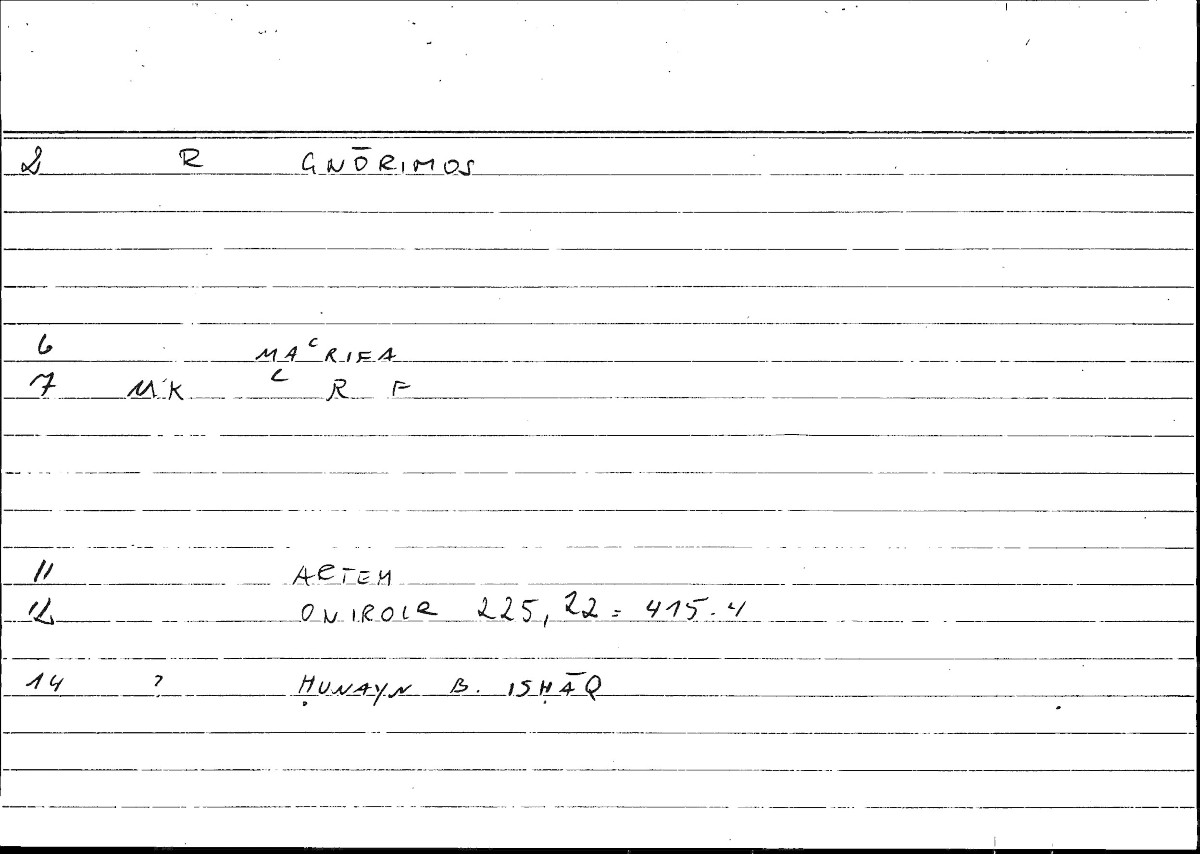 2 R GNŌRIMOS
6 MAʿRIFA
7 MK ʿ R F
11 ARTEM
12 ONIROCR 225, 22 = 415.4
14 ? ḤUNAYN B. ISḤĀQ